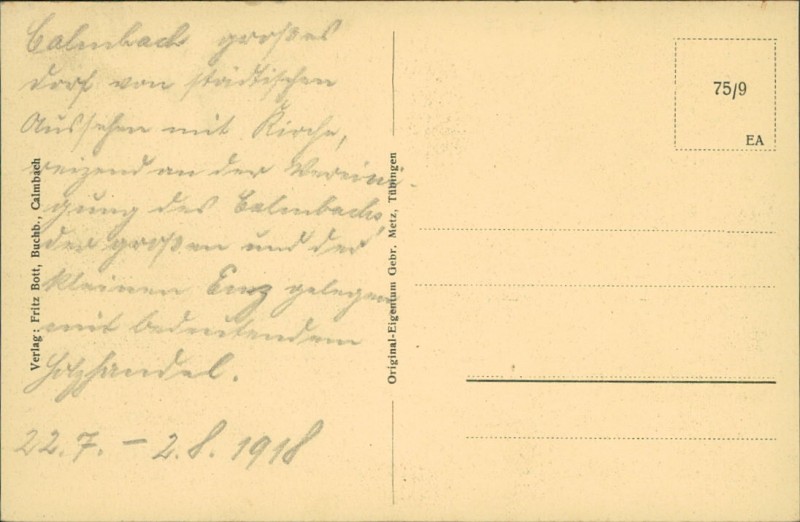 Calmbach großes
Dorf von städtischen
Aussehen mit Kirche,
reizend an der Vereini-
gung des Calmbachs,
der großen und der
kleinen Enz gelegen
mit bedeutendem
Holzhandel.
22.7. – 2.8. 1918
Verlag: Fritz Bott, Buchb., Calmbach
Original-Eigentum Gebr. Metz, Tübingen
75/9
EA